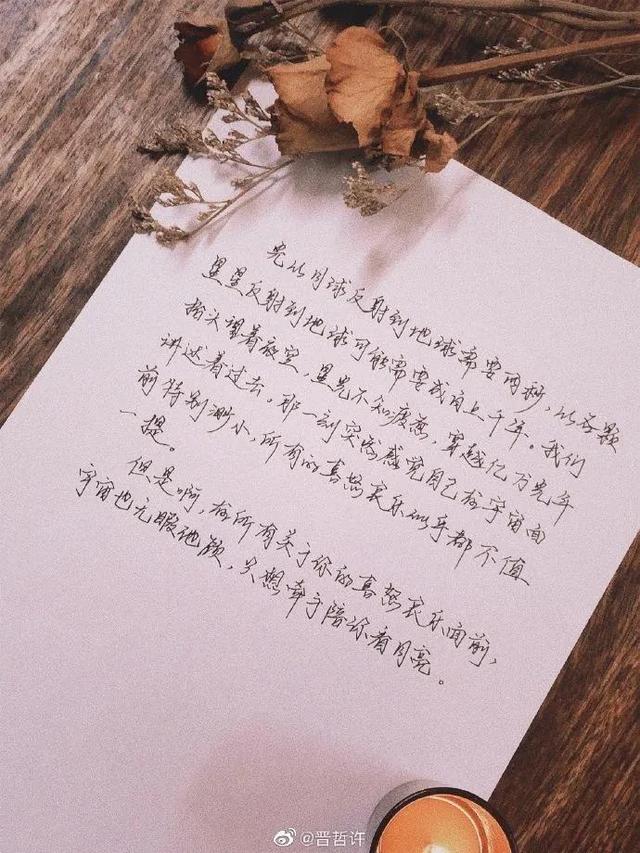 光从月球反射到地球需要两秒，从各颗
星星反射到地球可能需要成百上千年。我们
抬头望着夜空，星光不知疲惫，穿越亿万光年
讲述着过去。那一刻突然感觉自己在宇宙面
前特别渺小，所有的喜怒哀乐似乎都不值
一提。
但是啊，在所有关于你的喜怒哀乐面前，
宇宙也无暇他顾，只想牵手陪你看月亮。
@晋哲许